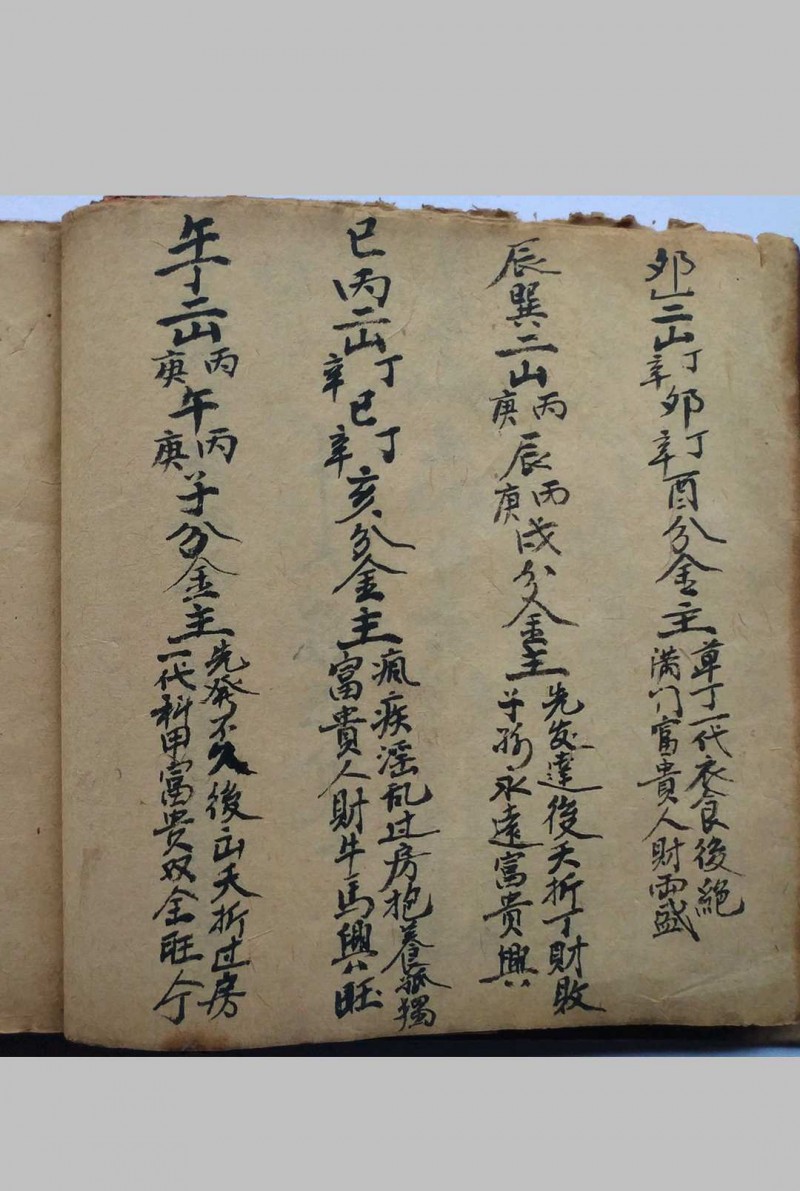 卯乙二山丁辛卯丁辛酉分金主
草丁一代衣食後絕
满门富貴人財兩盛
辰巽二山丙庚辰丙庚戌分金主
先发達後夭折丁財敗
子孫永遠富贵興
巳丙二山丁辛巳丁辛亥分金主
瘋疾淫乱过房抱養孤獨
富貴人財牛馬興旺
午丁二山丙庚午丙庚子分金主
先發不久後出夭折过房
一代科甲富贵双全旺